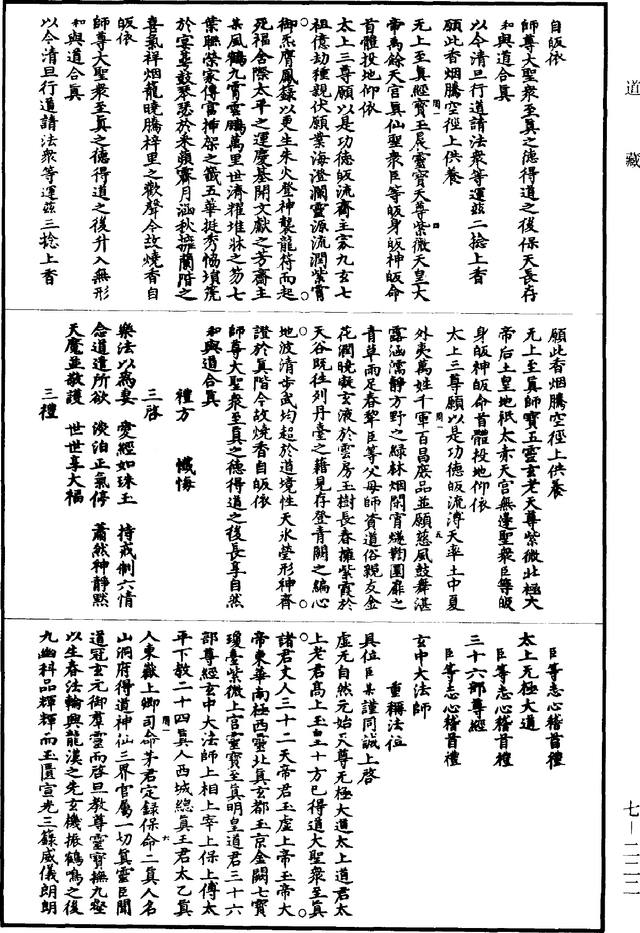 道藏
自皈依
師尊大聖衆至真之德得道之後保天長存
和與道合真
以今清旦行道請法衆等運茲二捻上香
願此香烟騰空徑上供養
无上至真經寶玉晨靈寶天尊紫微天皇大
帝萬餘天官真仙聖衆臣等皈身皈神皈命
首體投地仰依
太上三尊願以是功德皈流齋主家九玄七
祖億劫種親伏願業海澄瀾靈源流潤紫霄
御炁膺鳳籙以更生朱火登神襲龍符而起
死福會際太平之運慶基開文獻之芳齋主
某風鶴九霄雲鵬萬里世濟耀堆牀之笏七
葉聯榮家傳富插架之籤五華挺秀恊塤箎
於宴蓴鼓琴瑟於采蘋霽月涵秋擁蘭階之
喜氣祥烟籠曉騰梓里之歡聲今故燒香自
皈依
師尊大聖衆至真之德得道之後升入無形
和與道合真
以今清旦行道請法衆等運茲三捻上香
願此香烟騰空徑上供養
无上至真師寶五靈玄老天尊紫微北極大
帝后土皇地祇太赤天官無邊聖衆臣等皈
身皈神皈命首體投地仰依
太上三尊願以是功德皈流溥天率土中夏
外夷萬姓千軍百昌庶品並願慈風鼓舞湛
露涵濡靜方野之綠林烟閑霄燧鞠圜扉之
青草雨足春犂臣等父母師資道俗親友金
花潤晚凝玄液於雲房玉樹長春擁紫霞於
天谷既往列丹臺之籍見存登青闕之編心
地波清步武均超於道境性天氷瑩形神齊
證於真階今故燒香自皈依
師尊大聖衆至真之德得道之後長享自然
和與道合真
禮方　懺悔
三啓
樂法以為妻　愛經如珠玉　持戒制六情
念道遣所欲　淡泊正氣停　蕭然神靜默
天魔並敬護　世世享大福
三禮
臣等志心稽首禮
太上无極大道
臣等志心稽首禮
三十六部尊經
臣等志心稽首禮
玄中大法師
重稱法位
具位臣某謹同誠上啓
虛无自然元始天尊无極大道太上道君太
上老君高上玉皇十方已得道大聖衆至真
諸君丈人三十二天帝君玉虛上帝玉帝大
帝東華南極西靈北真玄都玉京金闕七寶
瓊臺紫微上宮靈寶至真明皇道君三十六
部尊經玄中大法師上相上宰上保上傅太
平下教二十四真人西城總真王君太乙真
人東嶽上卿司命茅君定錄保命二真人名
山洞府得道神仙三界官屬一切真靈臣聞
道冠玄元御羣靈而啓旦教尊靈寶撫九壑
以生春法輪興龍漢之先玄機振鶴鳴之後
九幽科品輝輝而玉匱宣光三籙威儀朗朗
七－二二二